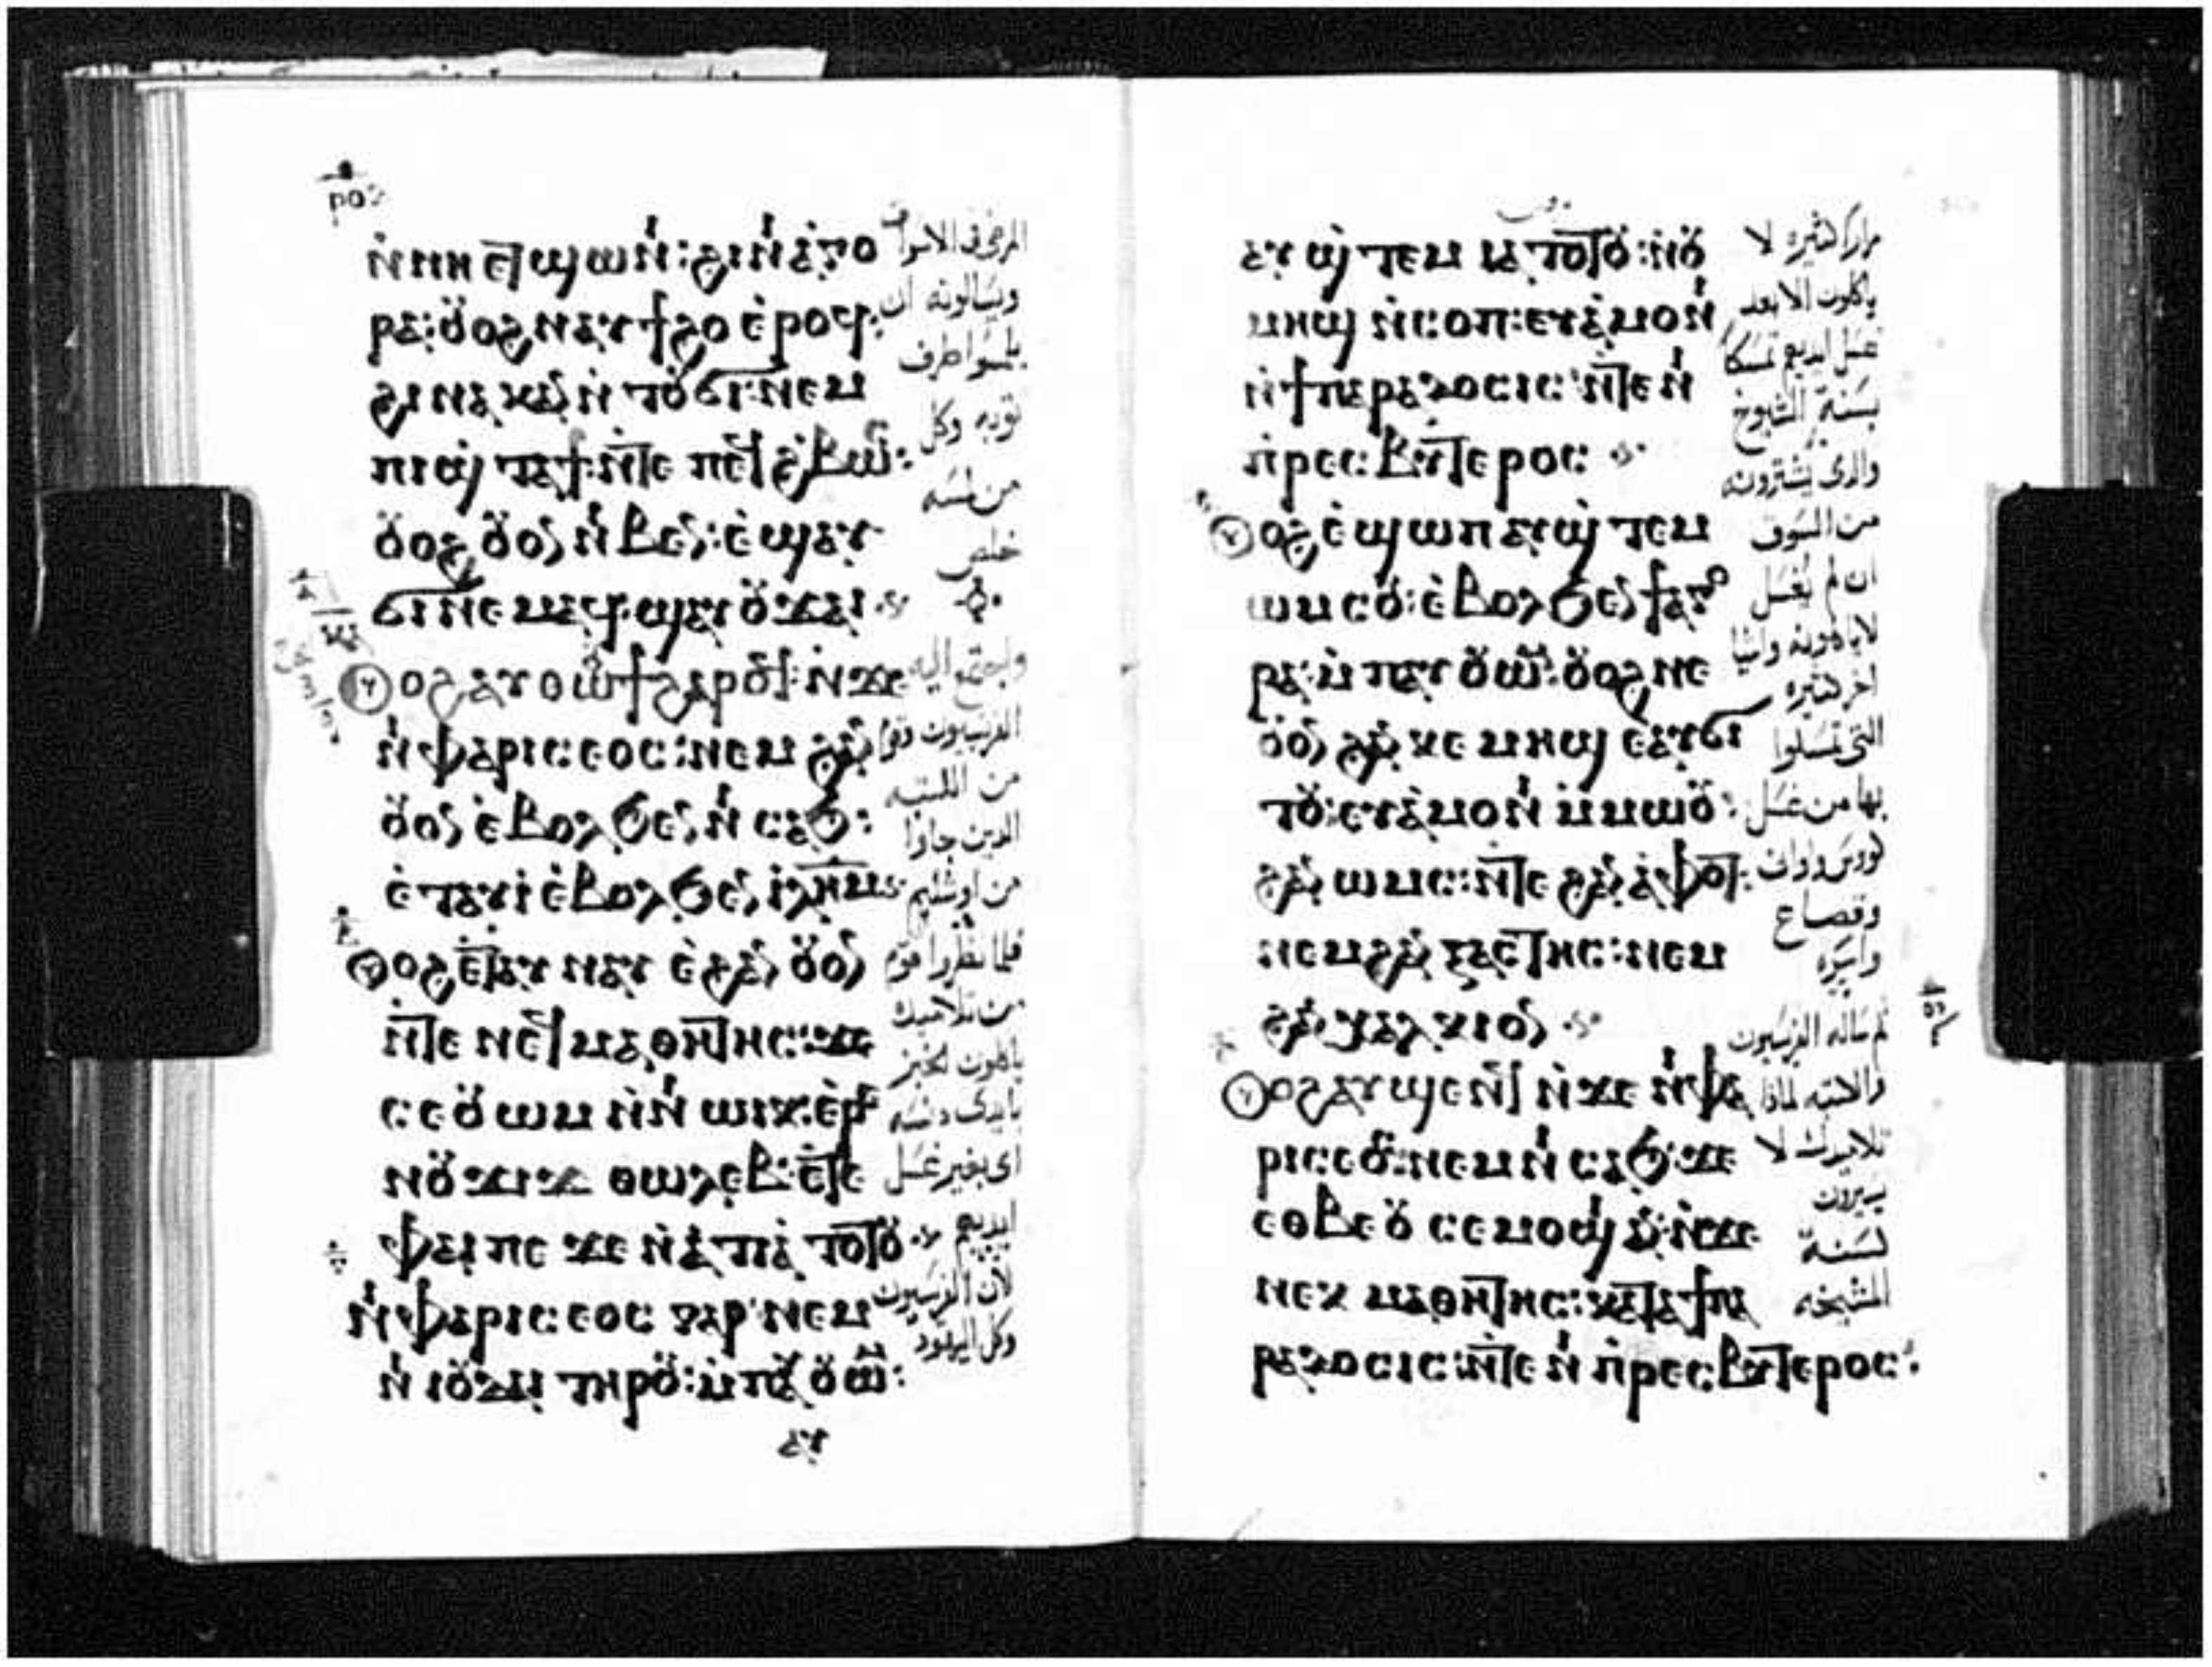 ⲣⲟⲋ
ⲛ̀ⲛⲏ ⲉⲧϣⲱⲛⲓ: ϩⲓⲛⲓⲁ̀ⲅⲟ
ⲣⲁ: ⲟⲩⲟϩ ⲛⲁⲩϯϩⲟ ⲉ̀ⲣⲟϥ:
ϩⲓⲛⲁ ⲕⲁⲛ ⲛ̀ⲧⲟⲩϭⲓ: ⲛⲉⲙ
ⲡⲓϣ̀ⲧⲁϯ: ⲛ̀ⲧⲉ ⲡⲉϥϩ̀ⲃⲱⲥ:
ⲟⲩⲟϩ ⲟⲩⲟⲛ ⲛⲓⲃⲉⲛ: ⲉ̀ϣⲁⲩ
ϭⲓⲛⲉⲙⲁϥ: ϣⲁⲩⲟⲩϫⲁⲓ
ⲟⲩⲟϩ ⲁⲩⲑⲱⲟⲩϯ ϩⲁⲣⲟϥ: ⲛ̀ϫⲉ
ⲛⲓⲫⲁⲣⲓⲥⲉⲟⲥ: ⲛⲉⲙ ϩⲁⲛ
ⲟⲩⲟⲛ ⲉ̀ⲃⲟⲗ ϧⲉⲛ ⲛⲓ ⲥⲁϧ:
ⲉ̀ⲧⲁⲩⲓ̀ ⲉ̀ⲃⲟⲗ ϧⲉⲛ ⲓ̀ⲗ̅ⲏ̅ⲙ̅
ⲟⲩⲟϩ ⲉⲧⲁⲩ ⲛⲁⲩ ⲉ̀ϩⲁⲛ ⲟⲩⲟⲛ
ⲛ̀ⲧⲉ ⲛⲉϥⲙⲁⲑⲏⲧⲏⲥ: ϫⲉ
ⲥⲉⲟⲩⲱⲙ ⲛ̀ⲛⲓ ⲱⲓⲕ: ⲉ̀ⲣⲉ
ⲛⲟⲩϫⲓϫ ⲑⲱⲗⲉⲃ: ⲉ̀ⲧⲉ
ⲫⲁⲓ ⲡⲉ ϫⲉ ⲛ̀ⲁ̀ⲧⲓⲁ̀ ⲧⲟⲧⲟⲩ
ⲛⲓⲫⲁⲣⲓⲥⲉⲟⲥ ⲅⲁⲣ ⲛⲉⲙ
ⲛⲓ ⲓⲟⲩⲇⲁⲓ ⲧⲏⲣⲟⲩ: ⲙ̀ⲡⲁⲩ ⲟⲩⲱⲙ:
ⲁⲩ
المرضى فى الاسواق
ويسالونه ان
يلمسوا طرف
ثوبه وكل
من لمسه
خلص
واجتمع اليه
الفريسيون وقوم
من الكتبه
الدين جاوا
من اورشليم
فلما نظروا قوم
من تلاميذه
ياكلون الخبز
بايدى دنسه
اى بغير غسل
ايديهم
لان الفريسيون
وكل اليهود
ⲁⲩϣ̀ⲧⲉⲙ ⲓⲁ ⲧⲟⲧⲟⲩ: ⲛ̀ⲟⲩ
ⲙⲏϣ ⲛ̀ⲥⲟⲡ: ⲉⲩⲁ̀ⲙⲟⲛⲓ
ⲛ̀ϯⲡⲁⲣⲁⲇⲟⲥⲓⲥ: ⲛ̀ⲧⲉ ⲛⲓ
ⲡ̀ⲣⲉⲥⲃⲩⲧⲉⲣⲟⲥ
ⲟⲩⲟϩ ⲉ̀ϣⲱⲡ ⲁⲩϣ̀ⲧⲉⲙ
ⲱⲙⲥⲟⲩ: ⲉ̀ⲃⲟⲗ ϧⲉⲛ ϯⲁⲅⲟ
ⲣⲁ: ⲙ̀ⲡⲁⲩ ⲟⲩⲱⲙ: ⲟⲩⲟϩ ⲛⲉ
ⲟⲩⲟⲛ ϩⲁⲛ ⲕⲉ ⲙⲏϣ ⲉⲁⲩϭⲓ
ⲧⲟⲩ: ⲉⲩⲁ̀ⲙⲟⲛⲓ ⲙ̀ⲙⲱⲟⲩ:
ϩⲁⲛ ⲱⲙⲥ: ⲛ̀ⲧⲉ ϩⲁⲛ ⲁ̀ⲫⲟⲧ:
ⲛⲉⲙ ϩⲁⲛ ⲝⲉⲥⲧⲏⲥ: ⲛⲉⲙ
ϩⲁⲛ ⲭⲁⲗⲕⲓⲟⲛ
ⲟⲩⲟϩ ⲁⲩϣⲉⲛϥ ⲛ̀ϫⲉ ⲛⲓⲫⲁ
ⲣⲓⲥⲉⲟⲥ: ⲛⲉⲙ ⲛⲓ ⲥⲁϧ: ϫⲉ
ⲉⲑⲃⲉⲟⲩ ⲥⲉⲙⲟϣⲓ ⲁⲛ: ⲛ̀ϫⲉ
ⲛⲉⲕ ⲙⲁⲑⲏⲧⲏⲥ: ⲕⲁⲧⲁ ϯⲡⲁ
ⲣⲁⲇⲟⲥⲓⲥ: ⲛ̀ⲧⲉ ⲛⲓ ⲡ̀ⲣⲉⲥⲃⲩⲧⲉⲣⲟⲥ:
مرارا كثيره لا
ياكلون الا بعد
غسل ايديهم تمسكا
بسنة الشيوخ
والدى يشترونه
من السوق
ان لم يغسل
لا ياكلونه واشيا
اخر كثيره
التى تمسكوا
بها من غسل
كووس واوانى
وقصاع
واسره
ثم ساله الفريسيون
والكتبه لماذا
تلاميذك لا
يسيرون
لسنة
المشيخه